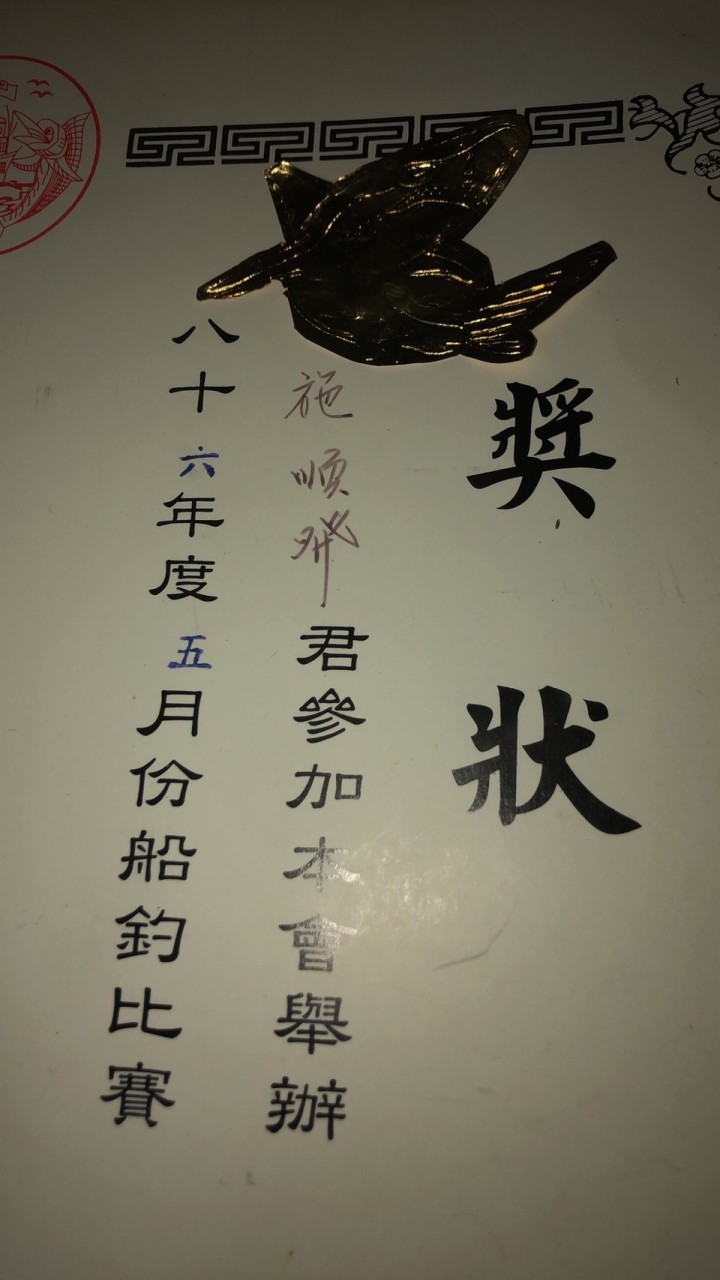 奬狀
施順飛君參加本會舉辦
八十六年度五月份船釣比賽